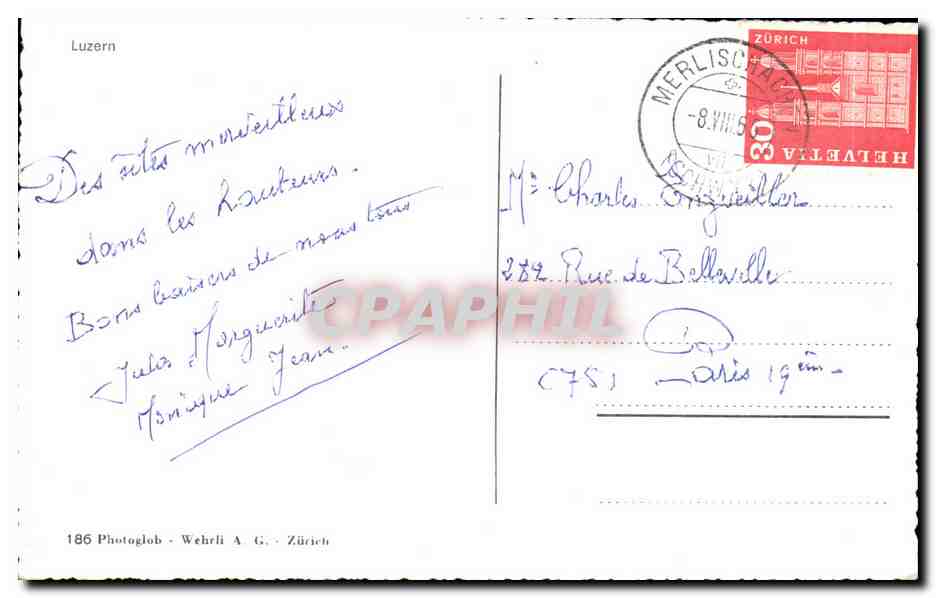 Luzern
Des sites merveilleux
dans les hauteurs.
Bons baisers de nous tous
Jules Marguerite
Monique Jean.
186 Photoglob - Wehrli A. G. - Zürich
ZÜRICH
30
HELVETIA
MERLISCHACHEN
-8.VIII.6
(SCHWYZ)
Mr Charles
282 Rue de Belleville
(75) Paris 19ème
CPAPHIL